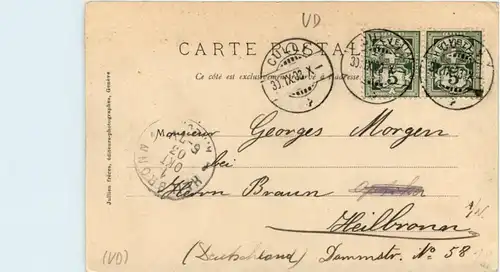 VD
CARTE POSTALE
Ce côté est exclusivement réservé à l'adresse.
CULLY
30.IX.03.X
5
5
Jullien frères, éditeurs-photographes, Genève
Monsieur Georges Morgen
bei
Herrn Braun
Heilbronn a/N.
(Deutschland) Dammstr. No 58
HEILBRONN
1 OKT 03
6-7
(VD)